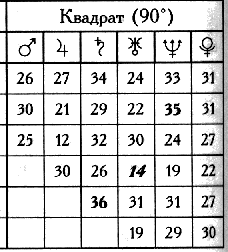 Квадрат (90°)
♂ ♃ ♄ ♅ ♆ ♀
26 27 34 24 33 31
30 21 29 22 35 31
25 12 32 30 24 27
30 26 14 19 22
36 31 31 27
19 29 30